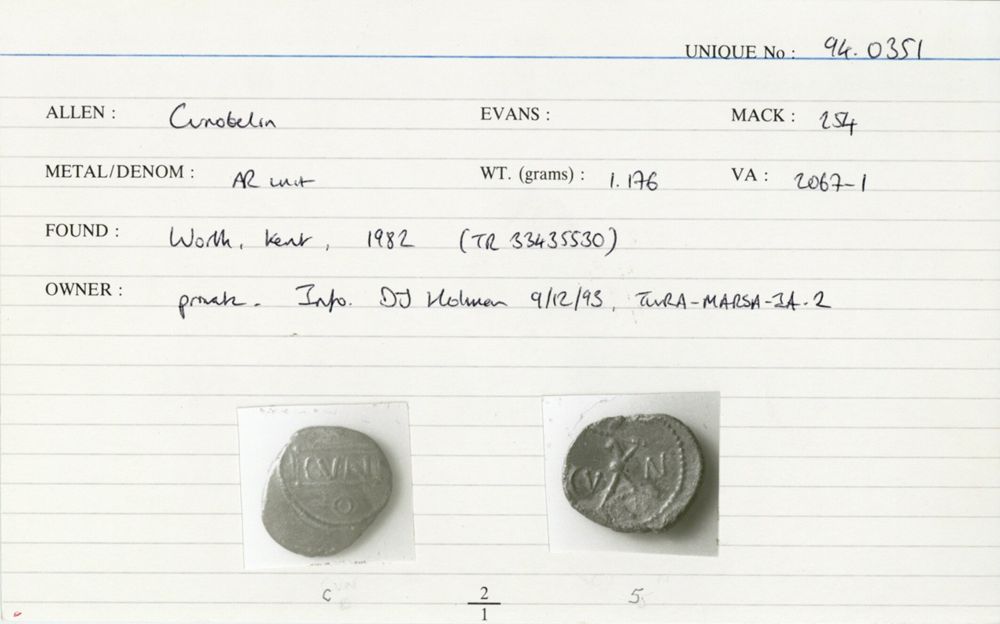 UNIQUE No : 94.0351
ALLEN : Cunobelin EVANS : MACK : 254
METAL/DENOM : AR unit WT. (grams) : 1.176 VA : 2067-1
FOUND : Worth, Kent, 1982 (TR 33435530)
OWNER : private. Info. DJ Holman 9/12/93,
CVN
O
CV N
C 2 5
1